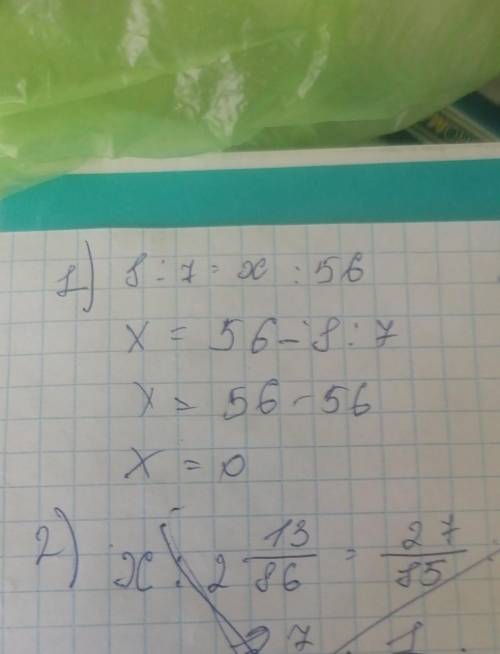 1) 8 : 7 = x : 56
x = 56 - 8 : 7
x = 56 - 56
x = 0
2) x : 2 13/86 = 27/85
27 : 1